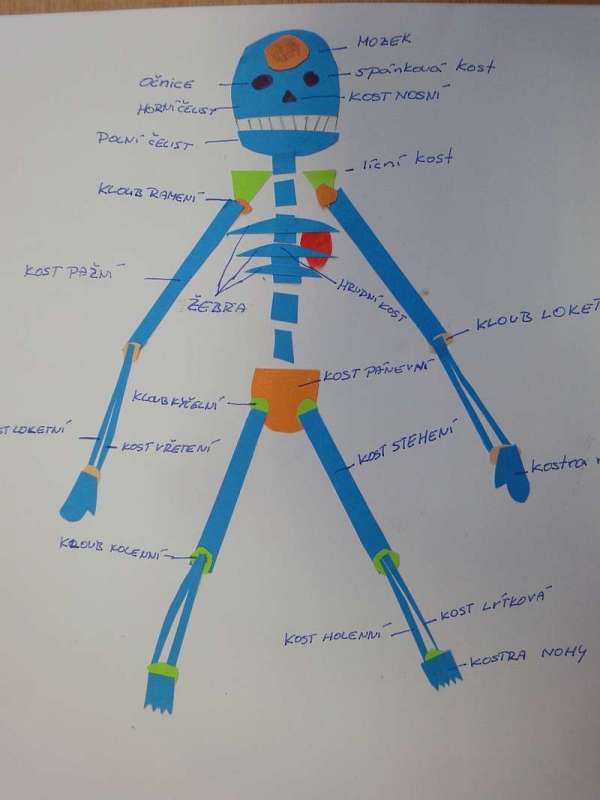 MOZEK
OČNICE
spánková kost
HORNÍ ČELIST
KOST NOSNÍ
DOLNÍ ČELIST
lícní kost
KLOUB RAMENÍ
KOST PAŽNÍ
ŽEBRA
HRUDNÍ KOST
KLOUB LOKET
KOST PÁNEVNÍ
KLOUB KYČELNÍ
ST LOKETNÍ
KOST VŘETENÍ
KOST STEHENÍ
kostra
KLOUB KOLENNÍ
KOST LÝTKOVÁ
KOST HOLENNÍ
KOSTRA NOHY